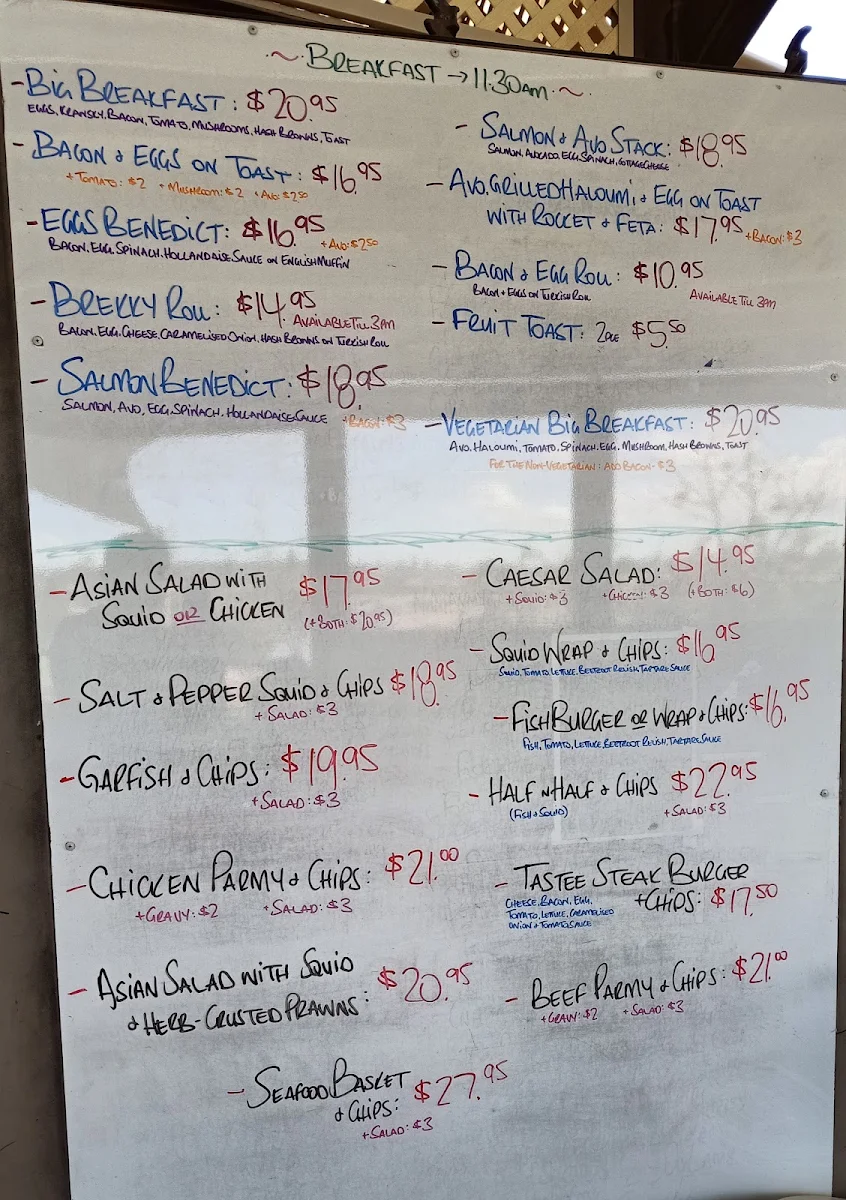 ~ BREAKFAST → 11.30am ~
- BIG BREAKFAST: $20.95
EGGS, KRANSKY, BACON, TOMATO, MUSHROOMS, HASH BROWNS, TOAST
- BACON & EGGS ON TOAST: $16.95
+ TOMATO: $2 + MUSHROOM: $2 + AVO: $2.50
- EGGS BENEDICT: $16.95
+ AVO: $2.50
BACON, EGG, SPINACH, HOLLANDAISE SAUCE ON ENGLISH MUFFIN
- BREKKY ROLL: $14.95
AVAILABLE TILL 3PM
BACON, EGG, CHEESE, CARAMELISED ONION, HASH BROWNS ON TURKISH ROLL
- SALMON BENEDICT: $18.95
SALMON, AVO, EGG, SPINACH, HOLLANDAISE SAUCE + BACON: $3
- SALMON & AVO STACK: $18.95
SALMON, AVOCADO, EGG, SPINACH, COTTAGE CHEESE
- AVO, GRILLED HALOUMI & EGG ON TOAST
WITH ROCKET & FETA: $17.95 + BACON: $3
- BACON & EGG ROLL: $10.95
BACON + EGGS ON TURKISH ROLL
AVAILABLE TILL 3PM
- FRUIT TOAST: 2PCE $5.50
- VEGETARIAN BIG BREAKFAST: $20.95
AVO, HALOUMI, TOMATO, SPINACH, EGG, MUSHROOM, HASH BROWNS, TOAST
FOR THE NON-VEGETARIAN: ADD BACON - $3
- ASIAN SALAD WITH
SQUID OR CHICKEN $17.95
(+ BOTH: $20.95)
- SALT & PEPPER SQUID & CHIPS $18.95
+ SALAD: $3
- GARFISH & CHIPS: $19.95
+ SALAD: $3
- CHICKEN PARMY & CHIPS: $21.00
+ GRAVY: $2 + SALAD: $3
- ASIAN SALAD WITH SQUID
& HERB-CRUSTED PRAWNS: $20.95
- CAESAR SALAD: $14.95
+ SQUID: $3 + CHICKEN: $3 (+ BOTH: $6)
- SQUID WRAP & CHIPS: $16.95
SQUID, TOMATO, LETTUCE, BEETROOT RELISH, TARTARE SAUCE
- FISH BURGER OR WRAP & CHIPS: $16.95
FISH, TOMATO, LETTUCE, BEETROOT RELISH, TARTARE SAUCE
- HALF N HALF & CHIPS $22.95
(FISH & SQUID) + SALAD: $3
- TASTEE STEAK BURGER
+ CHIPS: $17.50
CHEESE, BACON, EGG,
TOMATO, LETTUCE, CARAMELISED
ONION & TOMATO SAUCE
- BEEF PARMY & CHIPS: $21.00
+ GRAVY: $2 + SALAD: $3
- SEAFOOD BASKET
& CHIPS: $27.95
+ SALAD: $3